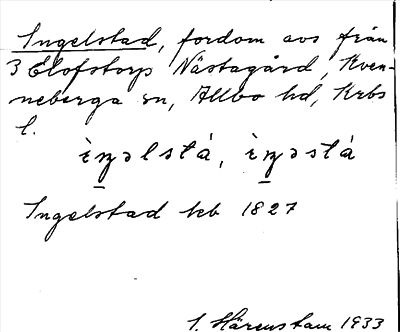 Ingelstad, fordom avs från
3 Elofstorps Nästagård, Kven-
neberga sn, Allbo hd, Krbs
l.
ìŋəlstá, ìŋəstá
Ingelstad kb 1827
I. Härenstam 1933